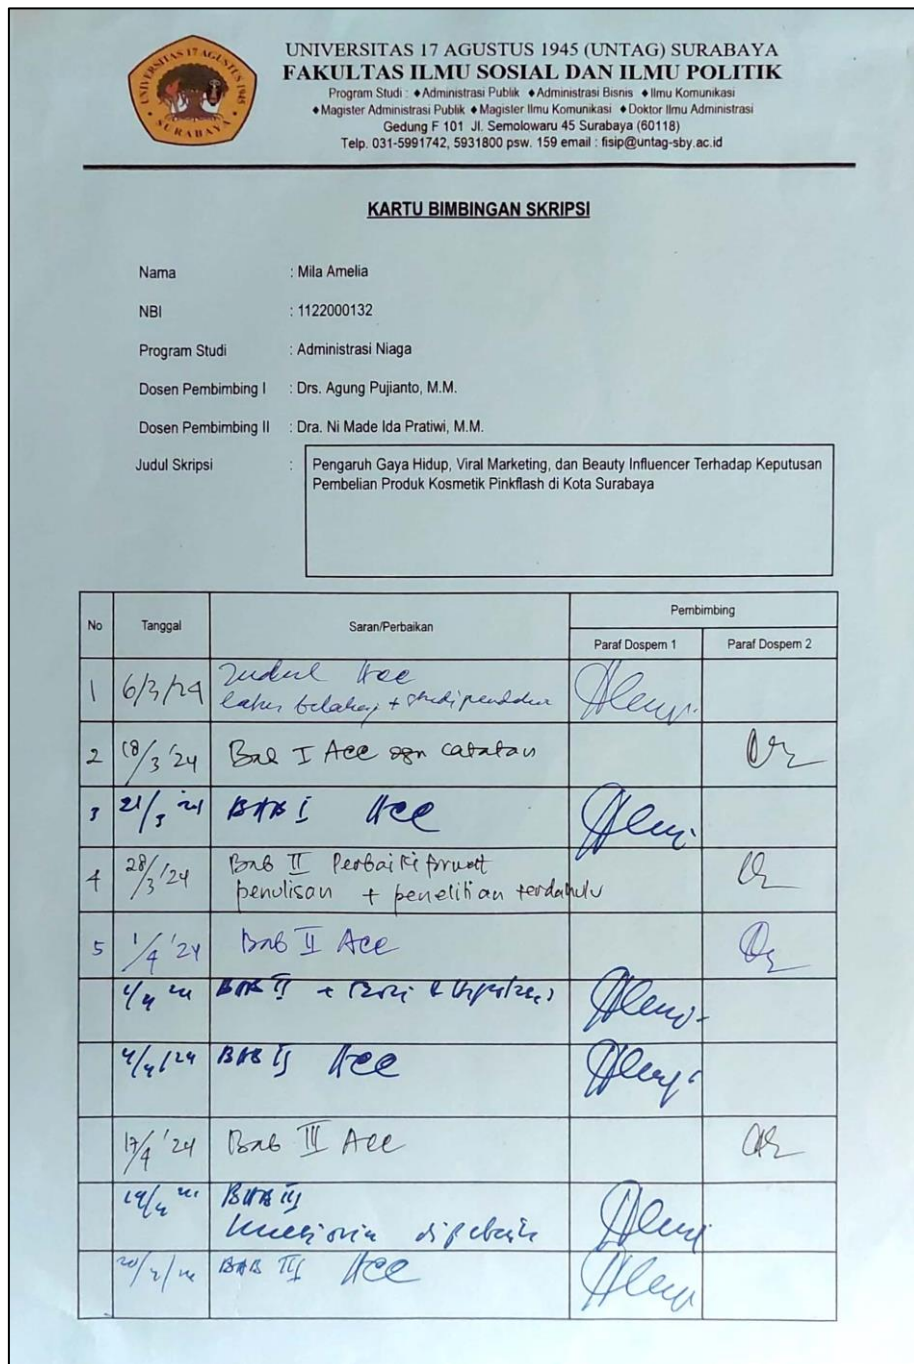 UNIVERSITAS 17 AGUSTUS 1945
SURABAYA
UNIVERSITAS 17 AGUSTUS 1945 (UNTAG) SURABAYA
FAKULTAS ILMU SOSIAL DAN ILMU POLITIK
Program Studi : ◆Administrasi Publik ◆Administrasi Bisnis ◆Ilmu Komunikasi
◆Magister Administrasi Publik ◆Magister Ilmu Komunikasi ◆Doktor Ilmu Administrasi
Gedung F 101 Jl. Semolowaru 45 Surabaya (60118)
Telp. 031-5991742, 5931800 psw. 159 email : fisip@untag-sby.ac.id
KARTU BIMBINGAN SKRIPSI
Nama : Mila Amelia
NBI : 1122000132
Program Studi : Administrasi Niaga
Dosen Pembimbing I : Drs. Agung Pujianto, M.M.
Dosen Pembimbing II : Dra. Ni Made Ida Pratiwi, M.M.
Judul Skripsi : Pengaruh Gaya Hidup, Viral Marketing, dan Beauty Influencer Terhadap Keputusan
Pembelian Produk Kosmetik Pinkflash di Kota Surabaya
No Tanggal Saran/Perbaikan Pembimbing
Paraf Dospem 1 Paraf Dospem 2
1 6/3/24 Judul Acc
latar belakang +
2 18/3 '24 Bab I Acc dgn catatan
3 21/3 '24 BAB I Acc
4 28/3 '24 Bab II Perbaiki format
penulisan + penelitian terdahulu
5 1/4 '24 Bab II Acc
BAB II +
4/4/24 BAB II Acc
17/4 '24 Bab III Acc
19/4 BAB III
BAB III Acc